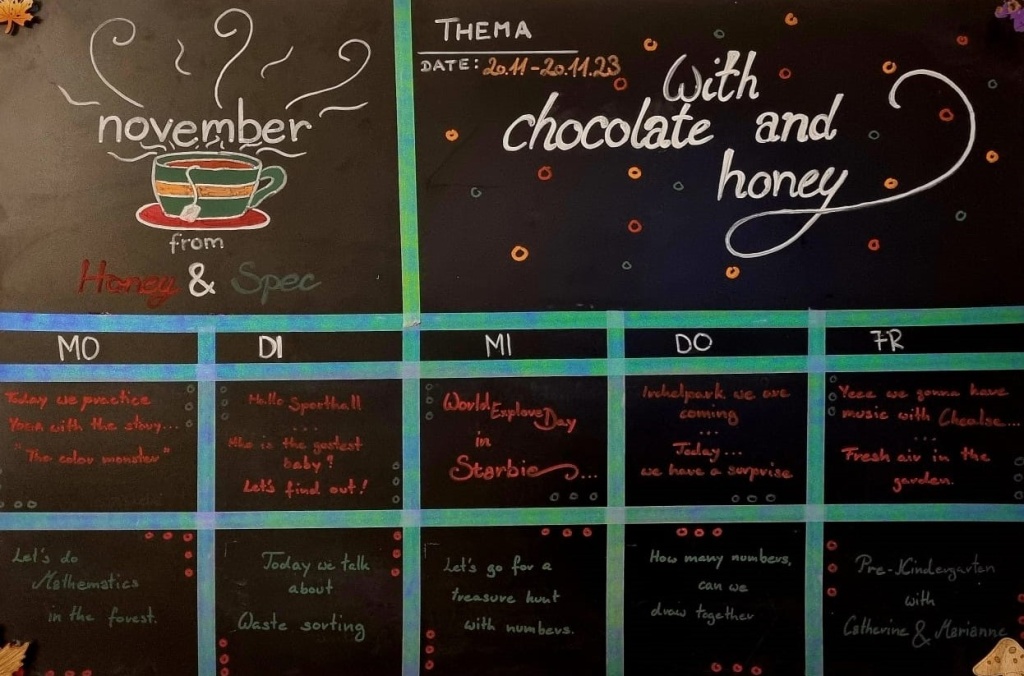 november
from
Honey & Spec
THEMA
DATE: 20.11-20.11.23
With
chocolate and
honey
MO
DI
MI
DO
FR
Today we practice
YOGA with the story...
"The color monster"
Hallo Sporthall
...
Who is the fastest
baby?
Let's find out!
World Explore Day
in
Starbie...
we are
coming
...
Today...
we have a surprise
Yeee we gonna have
music with Chealse...
...
Fresh air in the
garden.
Let's do
Mathematics
in the forest.
Today we talk
about
Waste sorting
Let's go for a
treasure hunt
with numbers.
How many numbers,
can we
draw together
Pre-Kindergarten
with
Catherine & Marianne